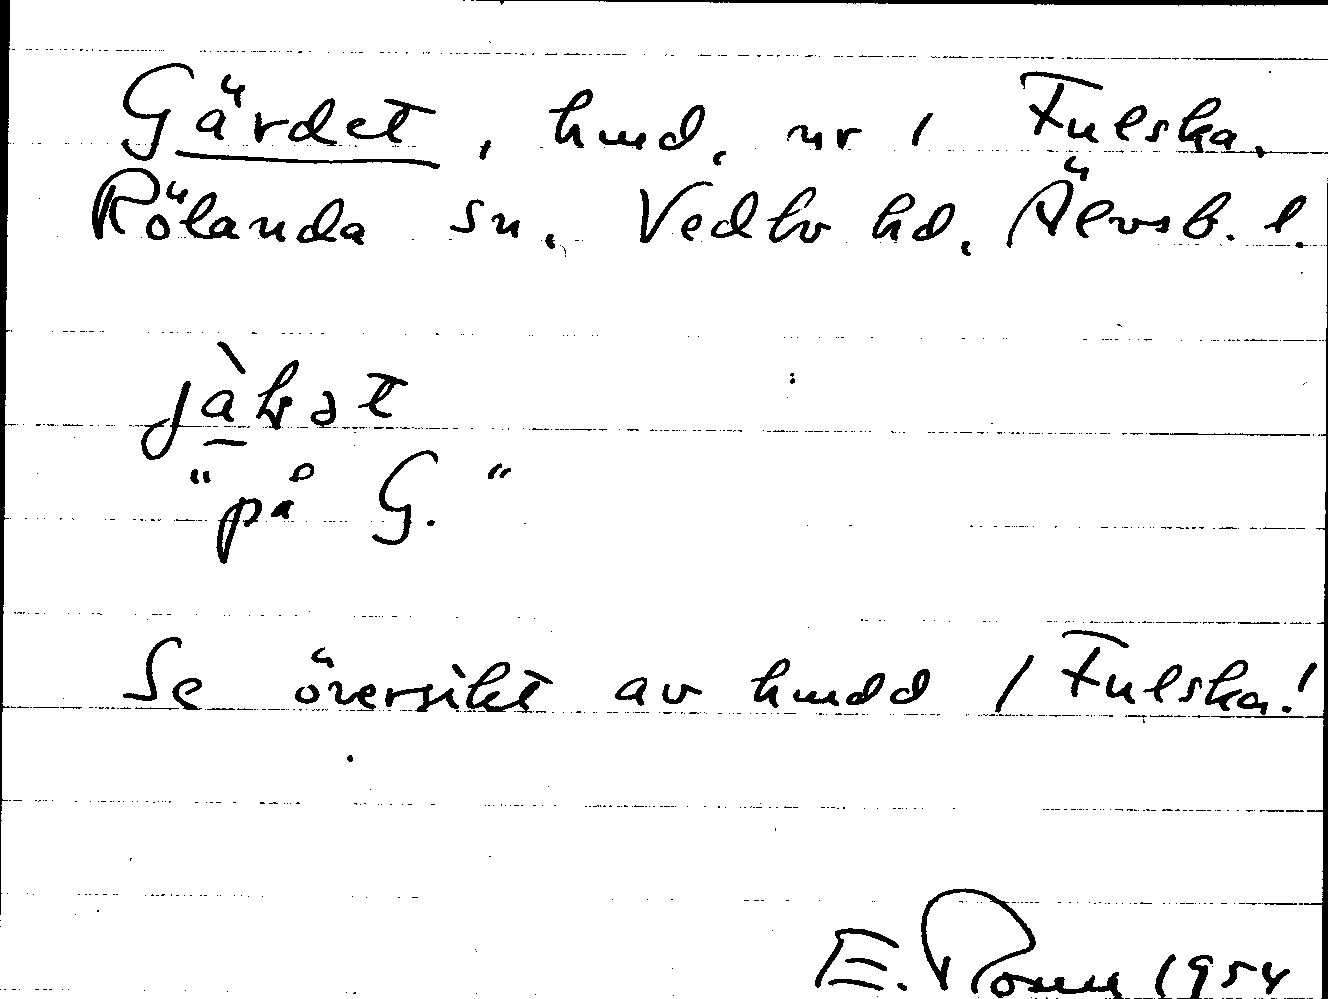 Gärdet, hmd. nr 1 Fulska.
Rölanda sn. Vedbo hd. Älvsb. l.
"på G."
Se översikt av hmdd 1 Fulska!
E. 1954